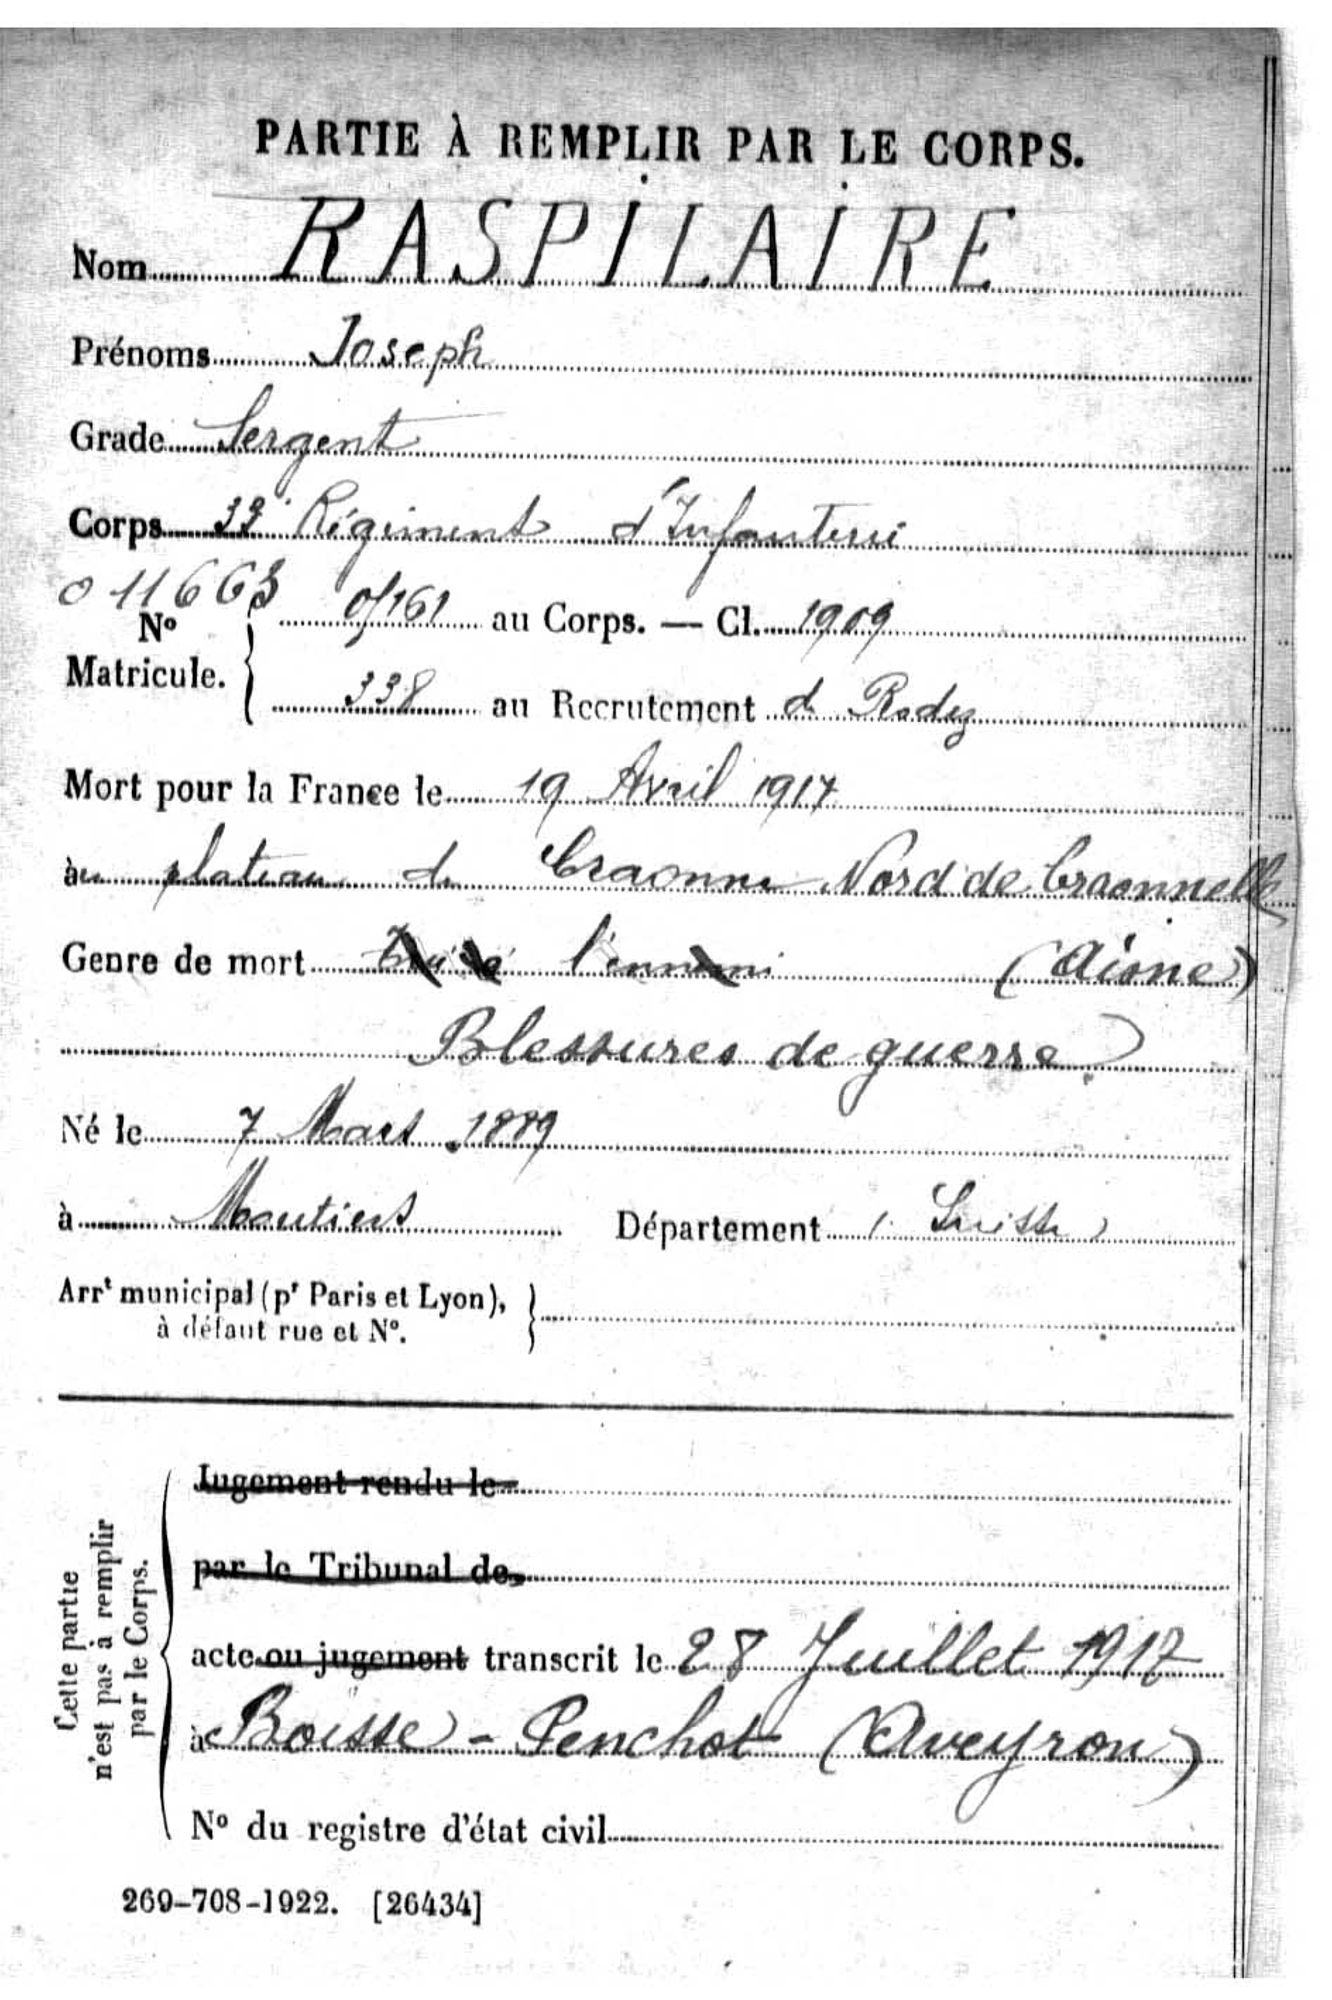 PARTIE À REMPLIR PAR LE CORPS.
Nom RASPILAIRE
Prénoms Joseph
Grade Sergent
Corps 33e Régiment d'Infanterie
011663
No 0/161 au Corps. — Cl. 1909
Matricule. 338 au Recrutement de Rodez
Mort pour la France le 19 Avril 1917
au plateau de Craonne Nord de Craonnelle
Genre de mort Tué à l'ennemi (Aisne)
Blessures de guerre
Né le 7 Mars 1889
à Moutiers Département (Suisse)
Arrt municipal (pr Paris et Lyon),
à défaut rue et No.
Cette partie
n'est pas à remplir
par le Corps.
Jugement rendu le
par le Tribunal de
acte ou jugement transcrit le 28 Juillet 1917
à Boisse-Penchot (Aveyron)
No du registre d'état civil
269-708-1922. [26434]